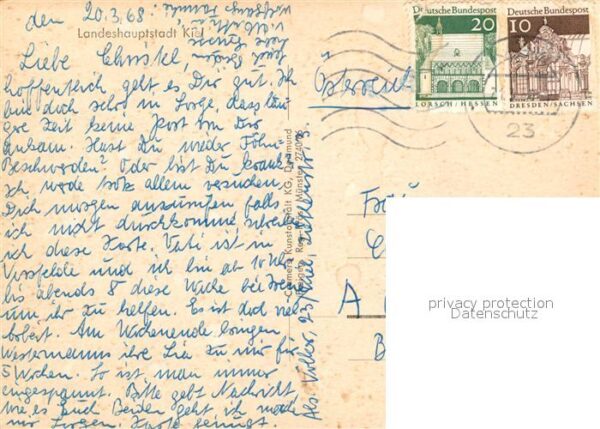 den 20.3.68
Landeshauptstadt Kiel
Liebe Christel,
hoffentlich geht es Dir gut. Ich
bin doch schon in Sorge, dass län
gere Zeit keine Post von Dir
ankam. Hast Du wieder Föhn-
Beschwerden? Oder bist Du krank?
Ich werde trotz allem versuchen,
Dich morgen anzurufen falls
ich nicht durchkomme schreibe
ich diese Karte. Vati ist in
und ich bin ab 10 Uhr
bis abends 8 diese Woche bei
um ihr zu helfen. Es ist doch viel
Arbeit. Am Wochenende bringen
Westermanns ihre Lia zu mir für
5 Wochen. So ist man immer
eingespannt. Bitte gebt Nachricht
wie es Euch Beiden geht ich mache
mir Sorgen. Karte genügt.
Cramers Kunstanstalt KG, Dortmund
Österreich
Deutsche Bundespost
20
LORSCH/HESSEN
Deutsche Bundespost
10
DRESDEN/SACHSEN
23
A
privacy protection
Datenschutz